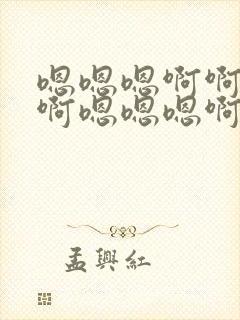 嗯嗯嗯啊啊
啊嗯嗯嗯啊
孟興紅